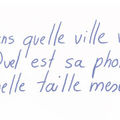 ns quelle ville
Quel est sa pho
elle taille mes